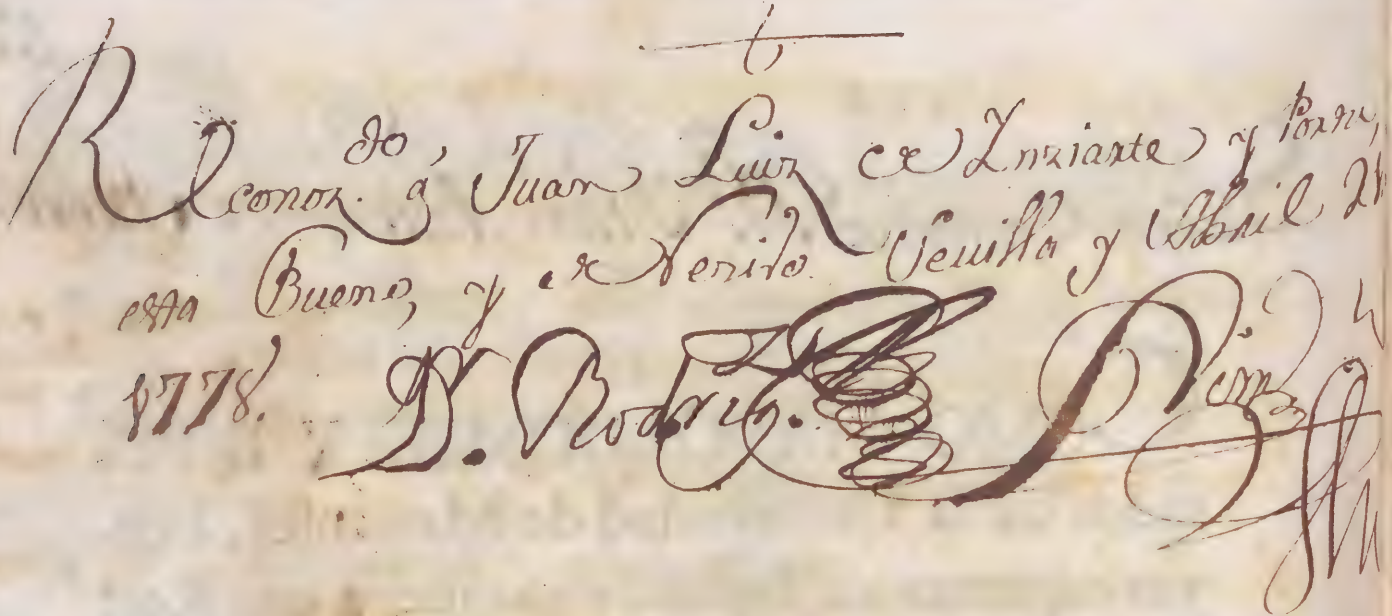 Reconoz.do, a Juan Luiz de Ynriarte y
esta Bueno, y de Recivo. Sevilla y Abril
1778. Dr. Rodrig.